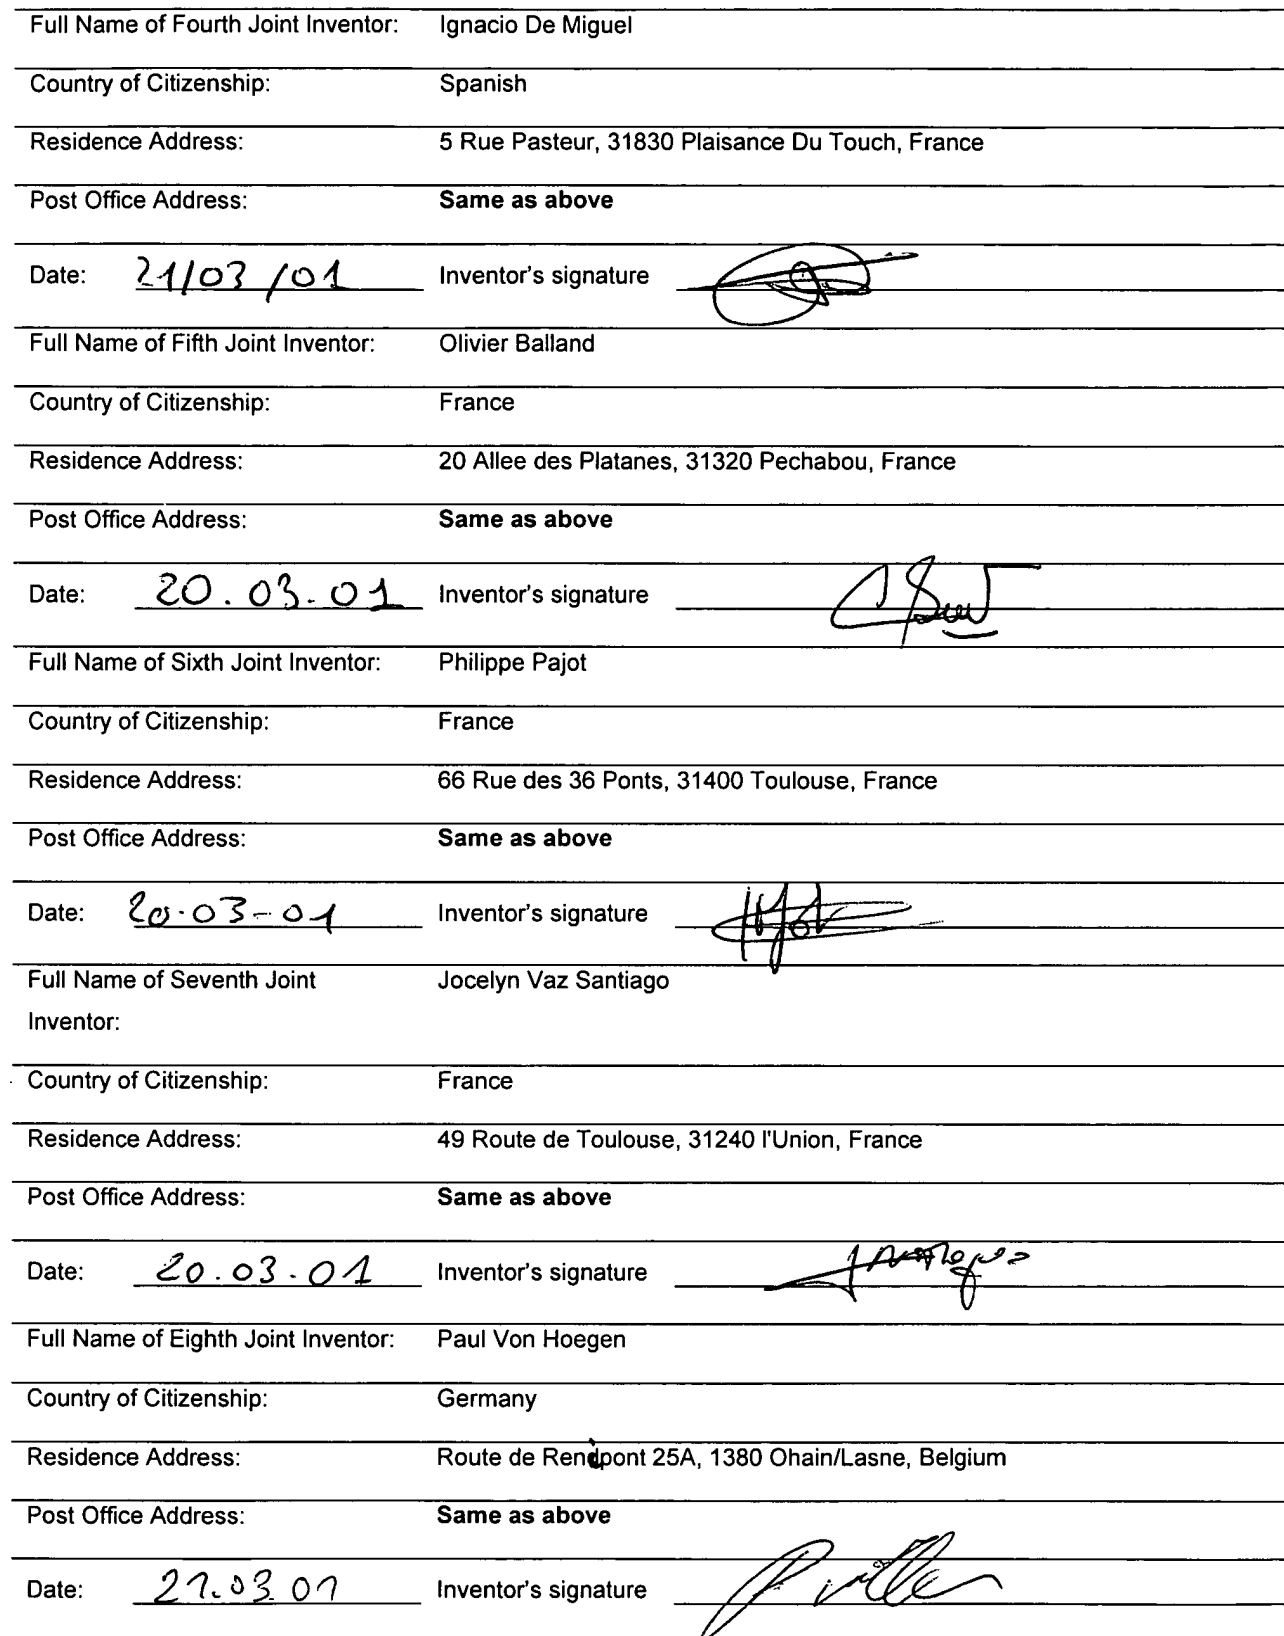 Full Name of Fourth Joint Inventor: Ignacio De Miguel
Country of Citizenship: Spanish
Residence Address: 5 Rue Pasteur, 31830 Plaisance Du Touch, France
Post Office Address: Same as above
Date: 21/03/01 Inventor's signature
Full Name of Fifth Joint Inventor: Olivier Balland
Country of Citizenship: France
Residence Address: 20 Allee des Platanes, 31320 Pechabou, France
Post Office Address: Same as above
Date: 20.03.01 Inventor's signature
Full Name of Sixth Joint Inventor: Philippe Pajot
Country of Citizenship: France
Residence Address: 66 Rue des 36 Ponts, 31400 Toulouse, France
Post Office Address: Same as above
Date: 20.03-01 Inventor's signature
Full Name of Seventh Joint Jocelyn Vaz Santiago
Inventor:
Country of Citizenship: France
Residence Address: 49 Route de Toulouse, 31240 l'Union, France
Post Office Address: Same as above
Date: 20.03.01 Inventor's signature
Full Name of Eighth Joint Inventor: Paul Von Hoegen
Country of Citizenship: Germany
Residence Address: Route de Renipont 25A, 1380 Ohain/Lasne, Belgium
Post Office Address: Same as above
Date: 21.03.01 Inventor's signature